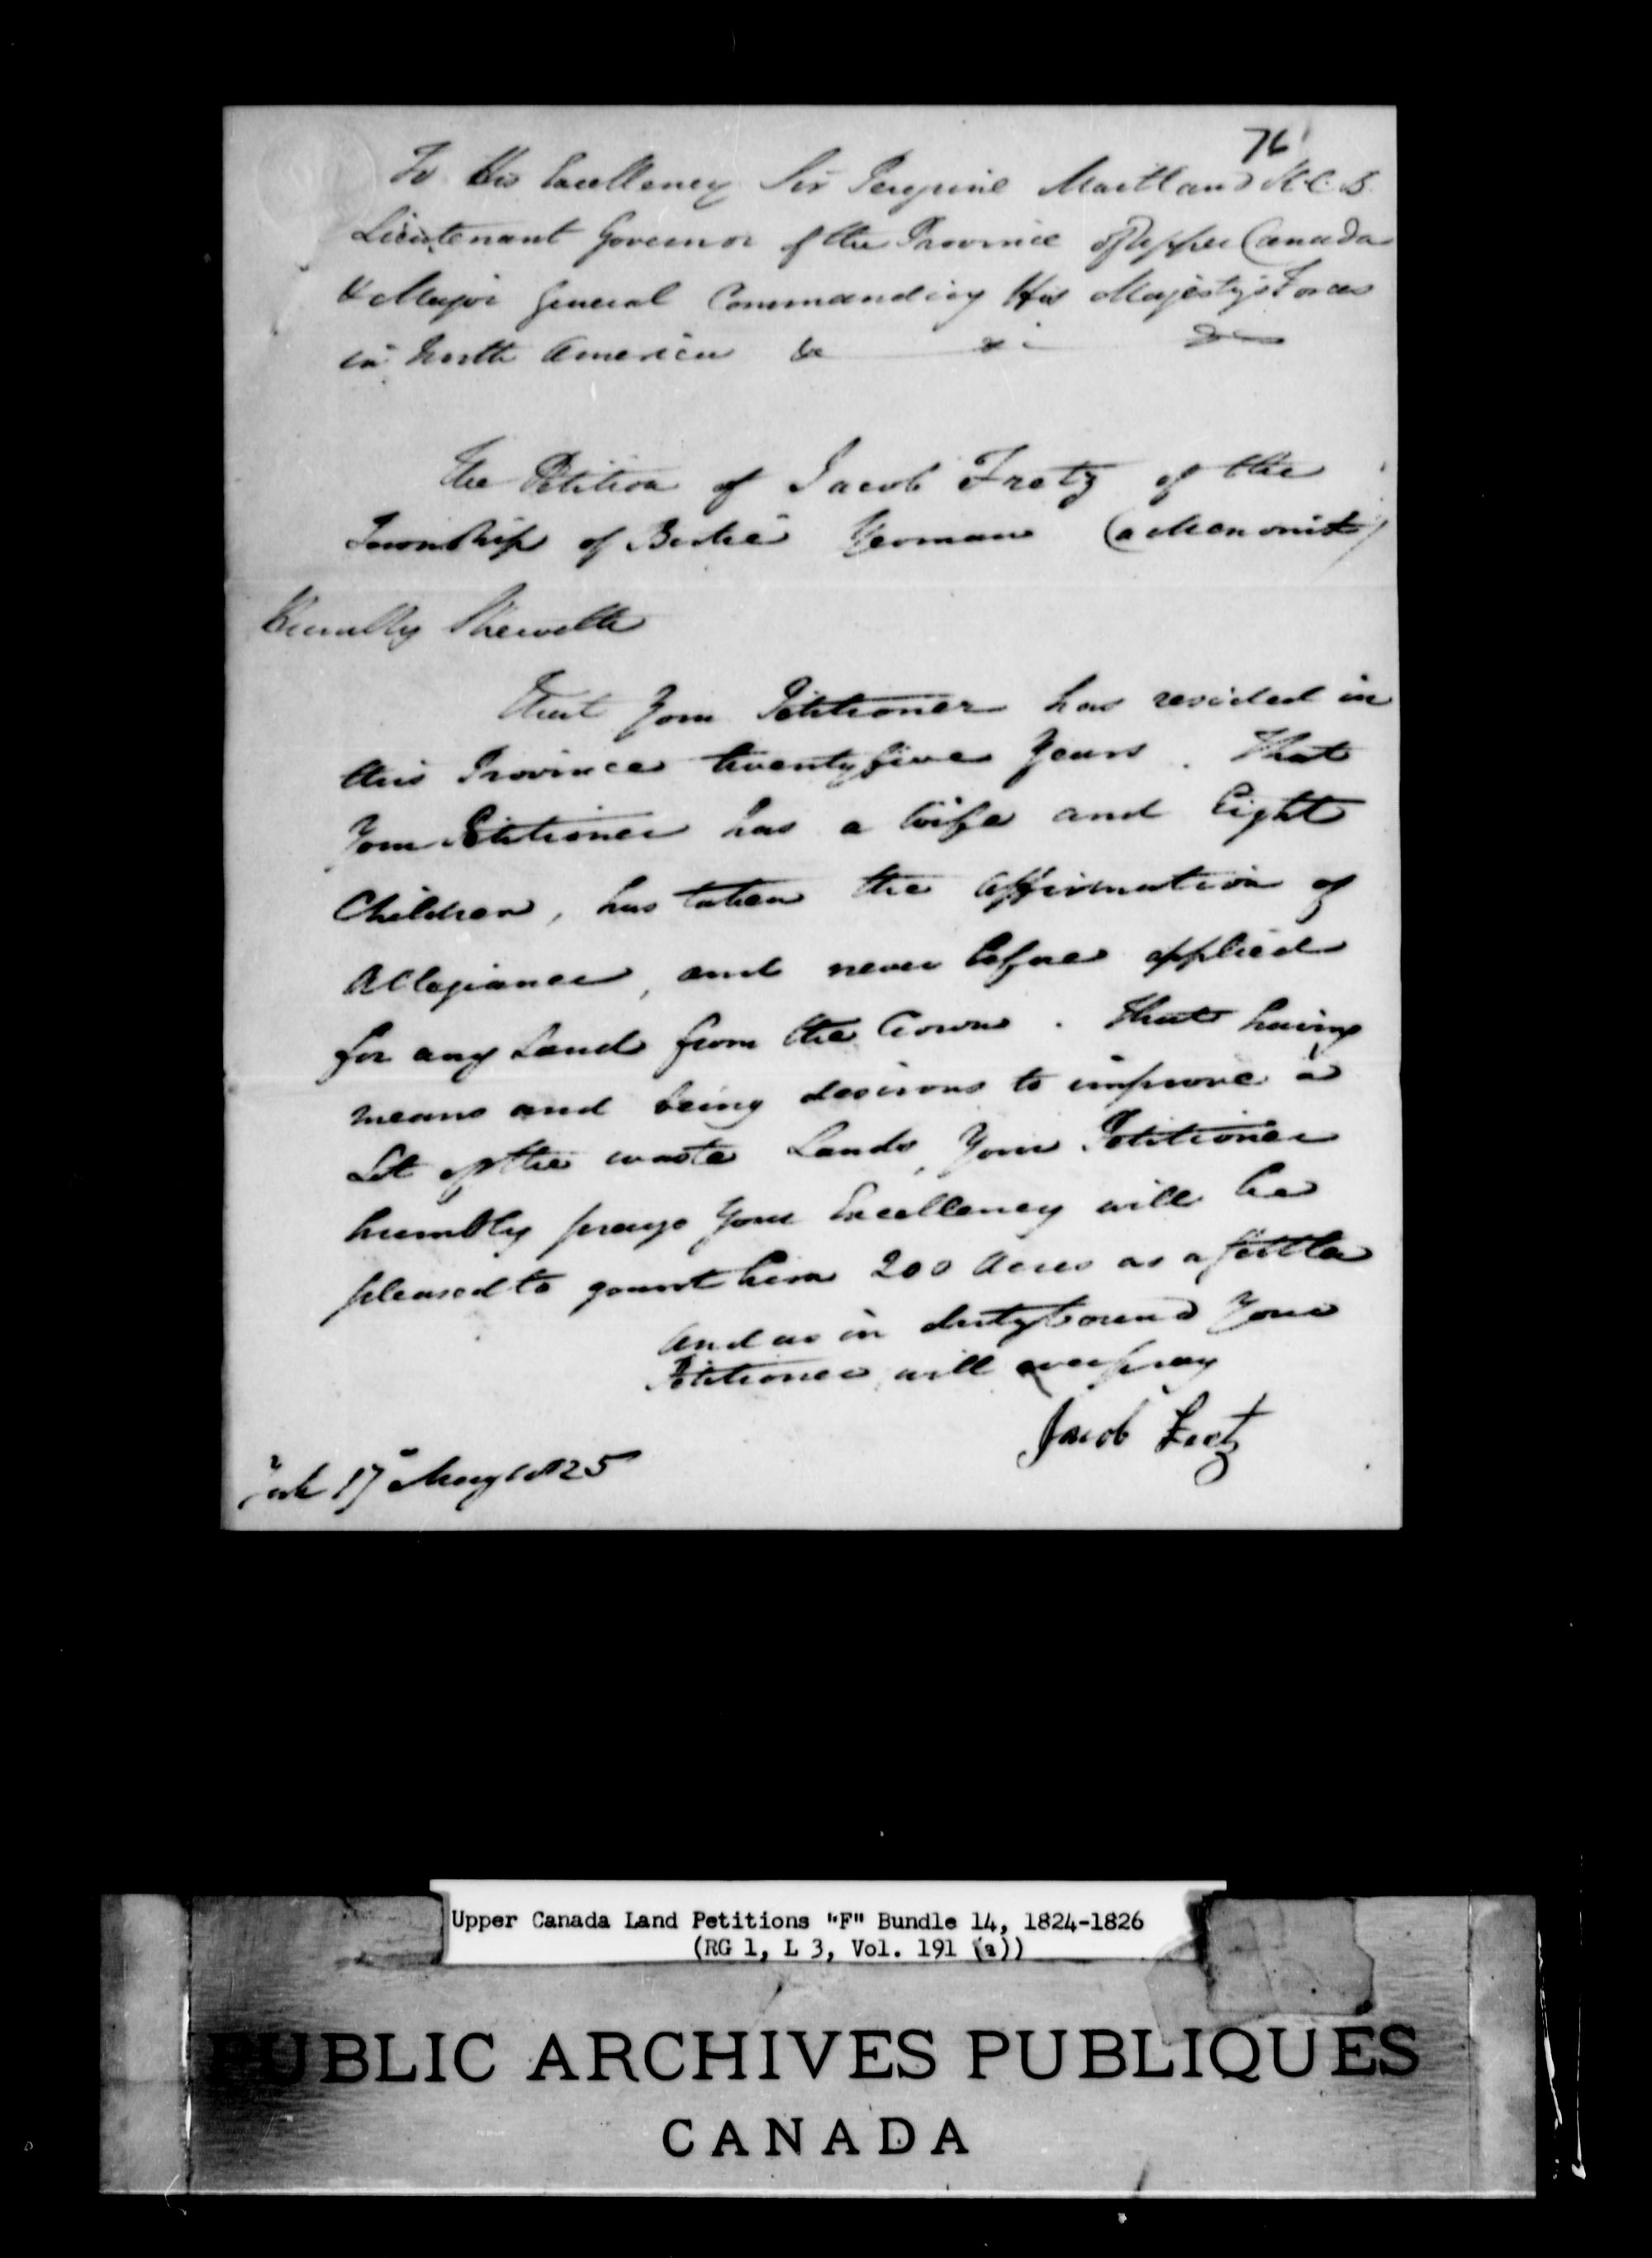 76
To His Excellency Sir Peregrine Maitland K.C.B.
Lieutenant Governor of the Province of Upper Canada
& Major General Commanding His Majesty's Forces
in North America &c &c &c
The Petition of Jacob Fretz of the
Township of Bertie Yeoman (a Menonist)
Humbly Sheweth
That Your Petitioner has resided in
this Province twenty five Years . That
Your Petitioner has a Wife and Eight
Children, has taken the affirmation of
Allegiance, and never before applied
for any Land from the Crown . That having
means and being desirous to improve a
Lot of the waste Lands, Your Petitioner
humbly prays Your Excellency will be
pleased to grant him 200 Acres as a settler
And as in duty bound Your
Petitioner will ever pray
Jacob Fretz
York 17th May 1825
Upper Canada Land Petitions "F" Bundle 14, 1824-1826
(RG 1, L 3, Vol. 191 (a))
PUBLIC ARCHIVES PUBLIQUES
CANADA